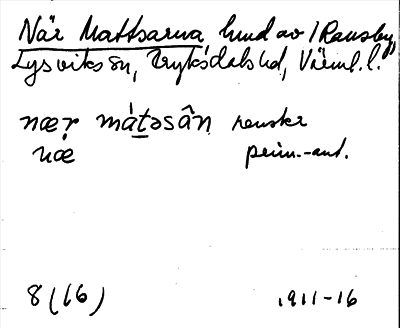 När Mattsarna, hmd av / Ransby,
Lysviks sn, Fryksdals hd, Värml. l.
nær mátəsân renskr
næ prim.-ant.
8 (16) 1911-16